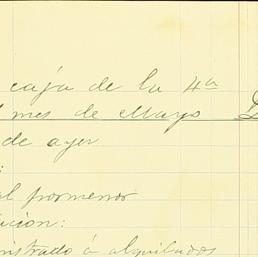 caja de la 4ª
mes de Mayo
de ayer
al pormenor
cion:
nistrado á alquilados